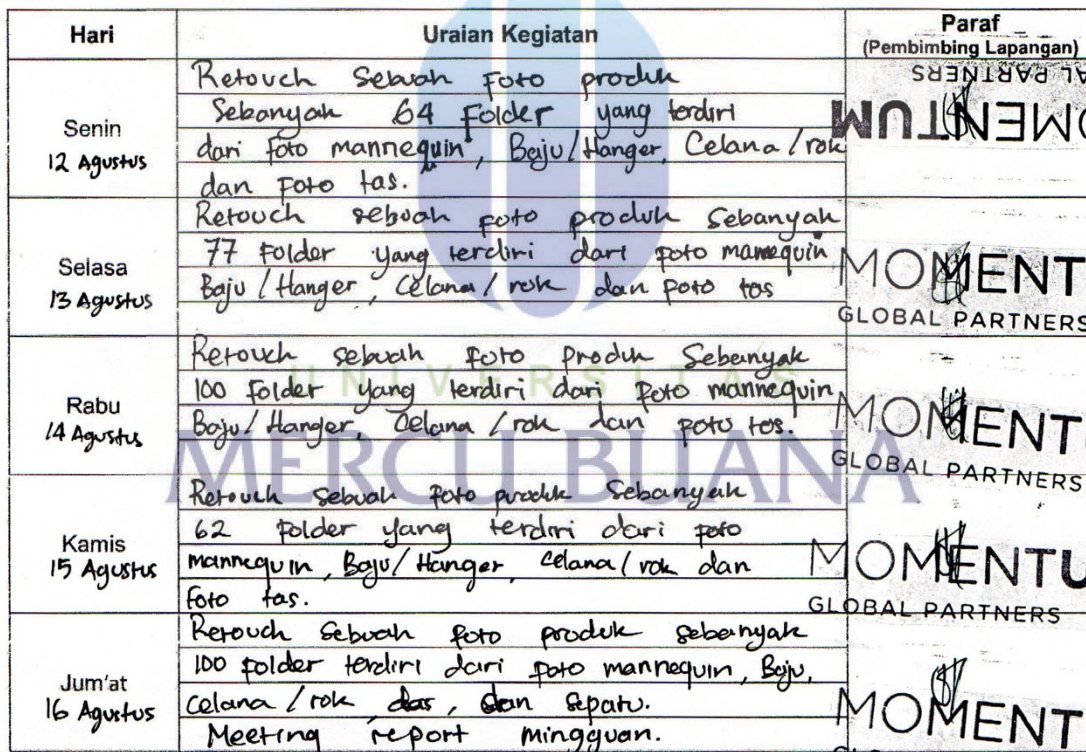 Hari Uraian Kegiatan Paraf
(Pembimbing Lapangan)
Senin
12 Agustus
Retouch Sebuah Foto produk
Sebanyak 64 Folder yang terdiri
dari Foto mannequin, Baju/Hanger, Celana/rok
dan Foto tas.
MOMENTUM
AL PARTNERS
Selasa
13 Agustus
Retouch sebuah foto produk Sebanyak
77 Folder yang terdiri dari foto mannequin
Baju/Hanger, Celana/rok dan foto tas
MOMENT
GLOBAL PARTNERS
Rabu
14 Agustus
Retouch sebuah foto produk Sebanyak
100 Folder yang terdiri dari foto mannequin
Baju/Hanger, Celana/rok dan foto tas.
MOMENT
GLOBAL PARTNERS
Kamis
15 Agustus
Retouch sebuah foto produk Sebanyak
62 folder yang terdiri dari foto
mannequin, Baju/Hanger, Celana/rok dan
foto tas.
MOMENTU
GLOBAL PARTNERS
Jum'at
16 Agustus
Retouch Sebuah foto produk sebanyak
100 folder terdiri dari foto mannequin, Baju,
celana/rok, dan sepatu.
Meeting report mingguan.
MOMENT
UNIVERSITAS
MERCU BUANA